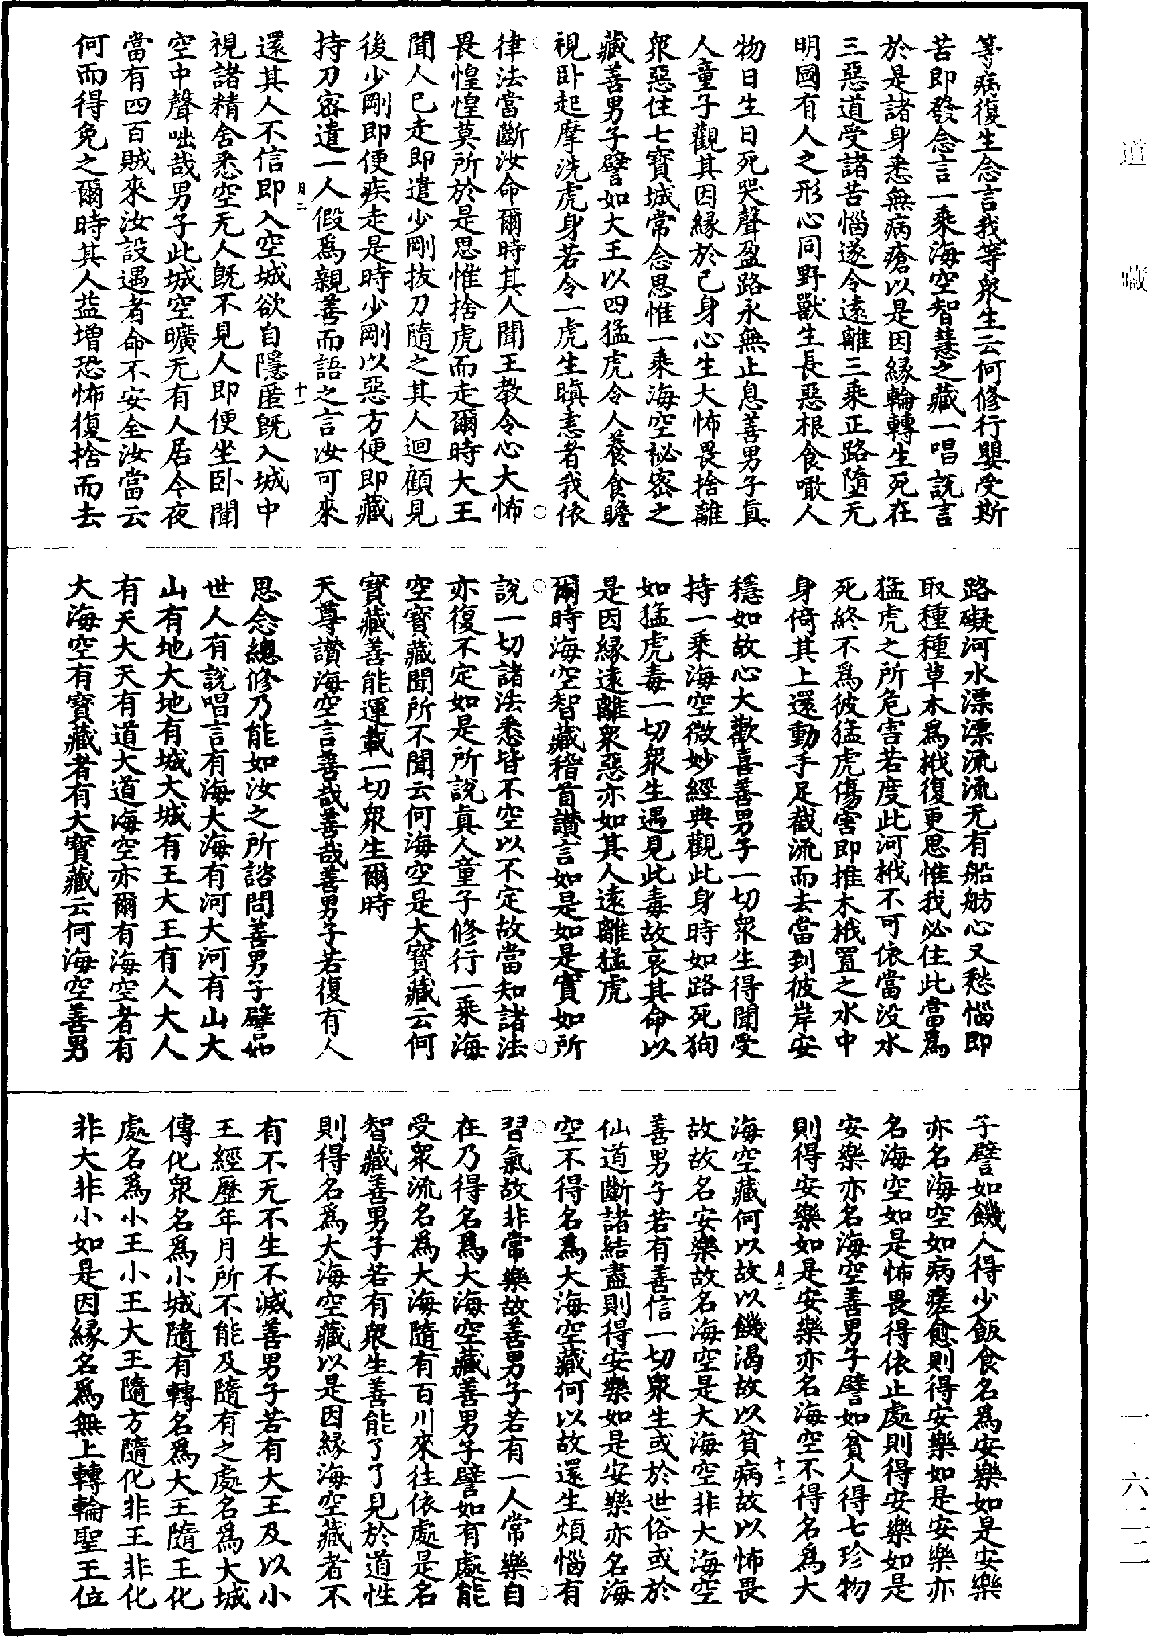 道藏
一·六二二
等病復生念言我等衆生云何修行嬰受斯
苦即發念言一乘海空智慧之藏一唱説言
於是諸身悉無病瘡以是因縁輪轉生死在
三惡道受諸苦惱遂令遠離三乘正路墮无
明國有人之形心同野獸生長惡根食噉人
物日生日死哭聲盈路永無止息善男子真
人童子觀其因縁於己身心生大怖畏捨離
衆惡住七寶城常念思惟一乘海空祕密之
藏善男子譬如大王以四猛虎令人養食瞻
視卧起摩洗虎身若令一虎生瞋恚者我依
律法當斷汝命爾時其人聞王教令心大怖
畏惶惶莫所於是思惟捨虎而走爾時大王
聞人已走即遣少剛拔刀隨之其人迴顧見
後少剛即便疾走是時少剛以惡方便即藏
持刀密遣一人假爲親善而語之言汝可來
月二 十一
還其人不信即入空城欲自隱匿既入城中
視諸精舍悉空无人既不見人即便坐卧聞
空中聲咄哉男子此城空曠无有人居今夜
當有四百賊來汝設遇者命不安全汝當云
何而得免之爾時其人益增恐怖復捨而去
路礙河水漂漂流流无有船舫心又愁惱即
取種種草木爲栰復更思惟我必住此當爲
猛虎之所危害若度此河栰不可依當没水
死終不爲彼猛虎傷害即推木栰置之水中
身倚其上還動手足截流而去當到彼岸安
穩如故心大歡喜善男子一切衆生得聞受
持一乘海空微妙經典觀此身時如路死狗
如猛虎毒一切衆生遇見此毒故哀其命以
是因縁遠離衆惡亦如其人遠離猛虎
爾時海空智藏稽首讃言如是如是實如所
説一切諸法悉皆不空以不定故當知諸法
亦復不定如是所説真人童子修行一乘海
空寶藏聞所不聞云何海空是大寶藏云何
寶藏善能運載一切衆生爾時
天尊讃海空言善哉善哉善男子若復有人
思念總修乃能如汝之所諮問善男子譬如
世人有説唱言有海大海有河大河有山大
山有地大地有城大城有王大王有人大人
有天大天有道大道海空亦爾有海空者有
大海空有寶藏者有大寶藏云何海空善男
子譬如饑人得少飯食名爲安樂如是安樂
亦名海空如病瘥愈則得安樂如是安樂亦
名海空如是怖畏得依止處則得安樂如是
安樂亦名海空善男子譬如貧人得七珍物
則得安樂如是安樂亦名海空不得名爲大
月二 十二
海空藏何以故以饑渴故以貧病故以怖畏
故故名安樂故名海空是大海空非大海空
善男子若有善信一切衆生或於世俗或於
仙道斷諸結盡則得安樂如是安樂亦名海
空不得名爲大海空藏何以故還生煩惱有
習氣故非常樂故善男子若有一人常樂自
在乃得名爲大海空藏善男子譬如有處能
受衆流名爲大海隨有百川來往依處是名
智藏善男子若有衆生善能了了見於道性
則得名爲大海空藏以是因縁海空藏者不
有不无不生不滅善男子若有大王及以小
王經歷年月所不能及隨有之處名爲大城
傳化衆名爲小城隨有轉名爲大王隨王化
處名爲小王小王大王隨方隨化非王非化
非大非小如是因縁名爲無上轉輪聖王位